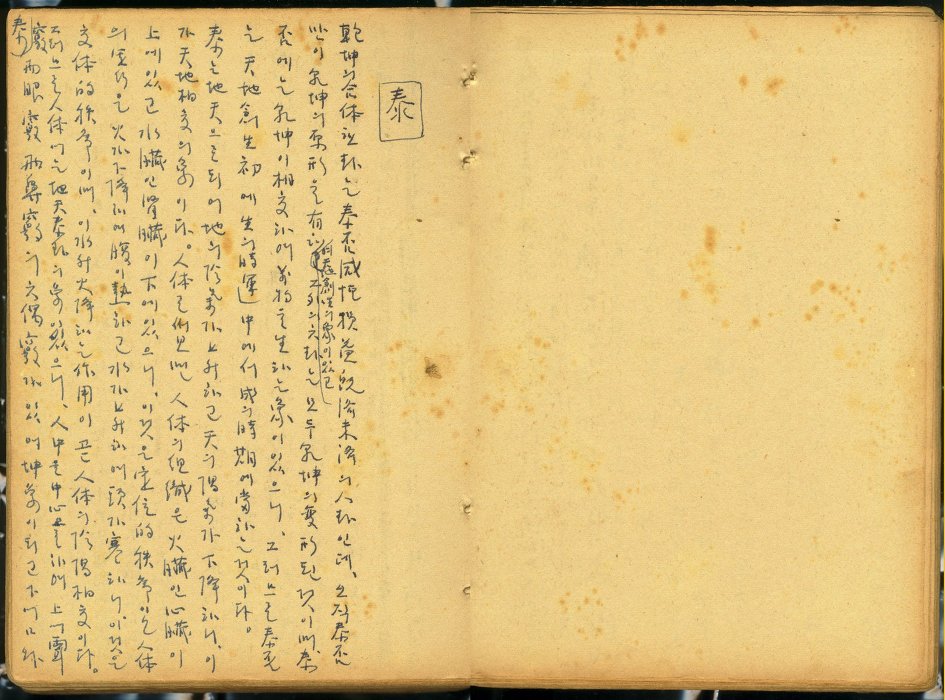 泰
乾坤의合体한卦는泰否咸恒損益旣濟未濟의八卦인데, 오직泰否
만이乾坤의原形을有하고 그外의六卦는모두乾坤의變形된것이며, 泰
否에는乾坤이相交하여萬物을生하는象이있으니, 그러므로泰否
는天地創生初에生의時運中에서成의時期에當하는것이다.
泰는地天으로되어地의陰氣가上升하고天의陽氣가下降하니, 이
가天地相交의象이다. 人体로써보면人体의組織은火臟인心臟이
上에있고水臟인腎臟이下에있으니, 이것은定位的秩序이오人体
의運行은火가下降하여腹이熱하고水가上升하여頭가寒하니, 이것은
交体的秩序이며, 이水升火降하는作用이곧人体의陰陽相交이다.
그러므로人体에는地天泰卦의象이있으니, 人中을中心으로하여上에耳
竅兩眼竅兩鼻竅의六偶竅가있어坤象이되고下에口와
泰